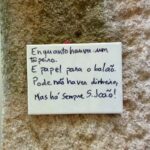 Enquanto houver um
tapeiro.
E papel para o balão.
Pode não haver dinheiro,
Mas há sempre S. João!